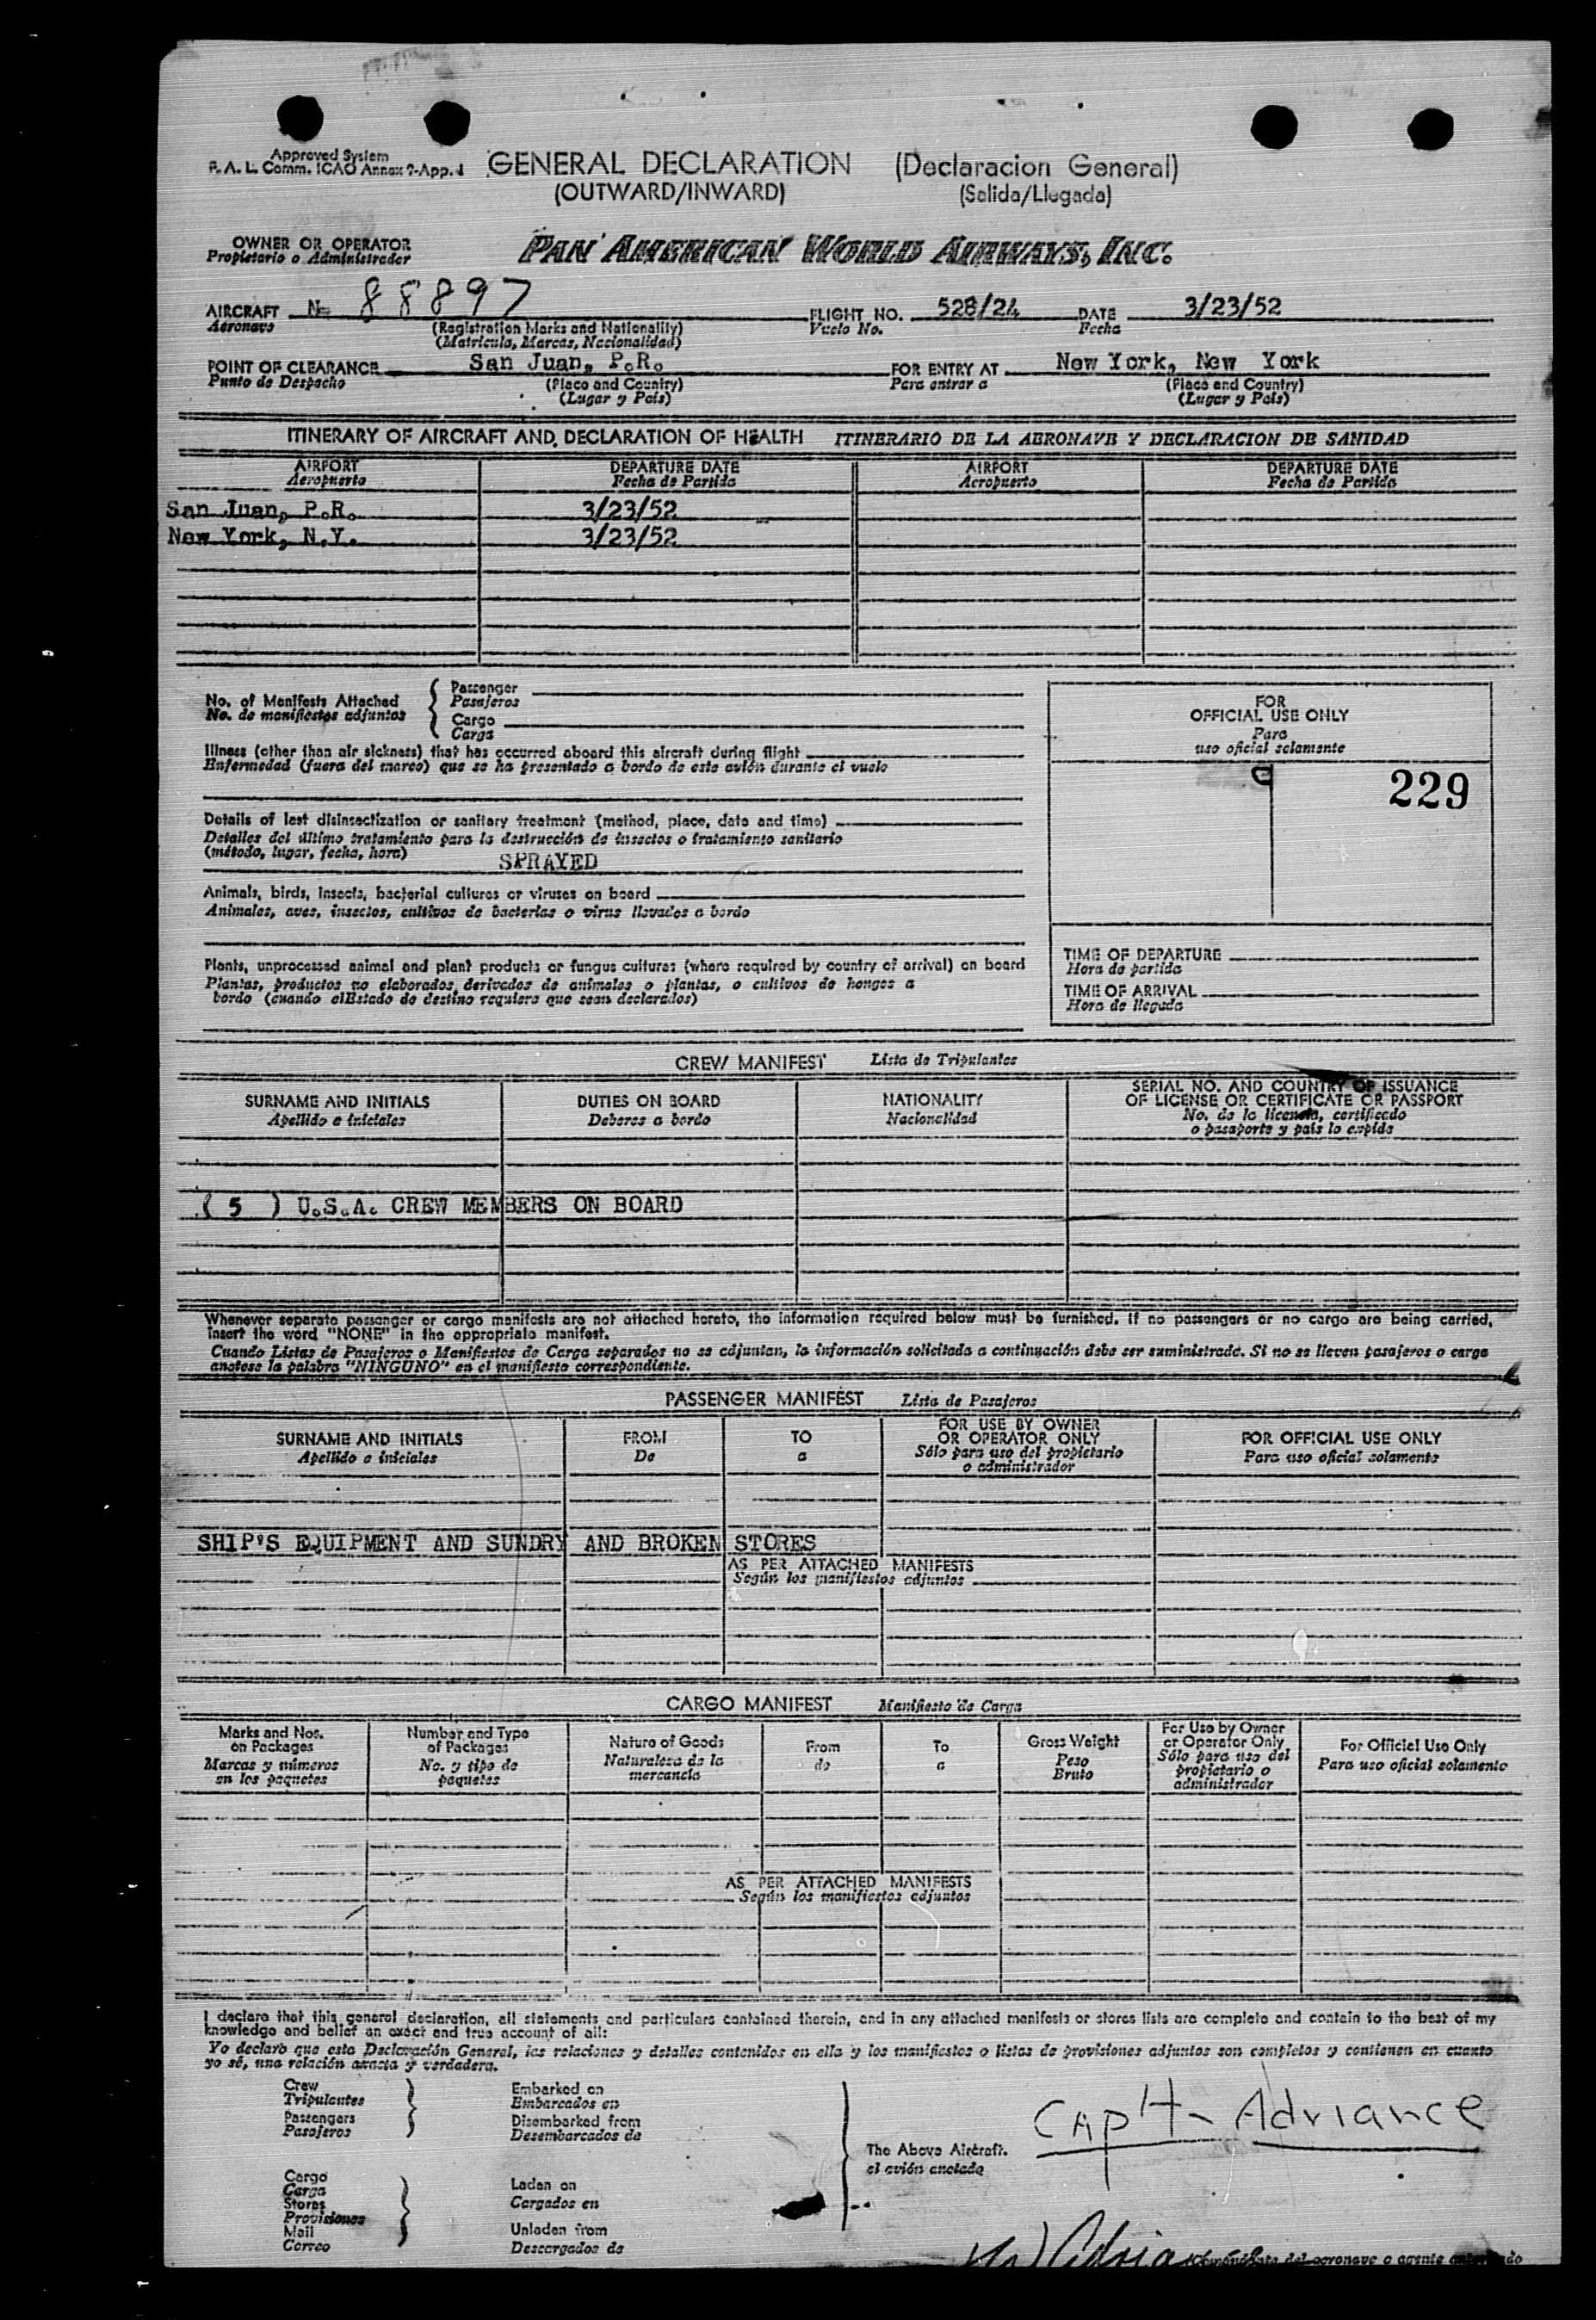 Approved System
F. A. L. Comm. ICAO Annex 9-App. 1
GENERAL DECLARATION (Declaracion General)
(OUTWARD/INWARD) (Salida/Llegada)
OWNER OR OPERATOR
Propietario o Administrador
PAN AMERICAN WORLD AIRWAYS, INC.
AIRCRAFT N 88897 FLIGHT NO. 528/24 DATE 3/23/52
Aeronave (Registration Marks and Nationality) Vuelo No. Fecha
(Matricula, Marcas, Nacionalidad)
POINT OF CLEARANCE San Juan, P.R. FOR ENTRY AT New York, New York
Punto de Despacho (Place and Country) Para entrar a (Place and Country)
(Lugar y País) (Lugar y País)
ITINERARY OF AIRCRAFT AND DECLARATION OF HEALTH ITINERARIO DE LA AERONAVE Y DECLARACION DE SANIDAD
AIRPORT DEPARTURE DATE AIRPORT DEPARTURE DATE
Aeropuerto Fecha de Partida Aeropuerto Fecha de Partida
San Juan, P.R. 3/23/52
New York, N.Y. 3/23/52
No. of Manifests Attached
No. de manifiestos adjuntos
Passenger
Pasajeros
Cargo
Carga
Illness (other than air sickness) that has occurred aboard this aircraft during flight
Enfermedad (fuera del mareo) que se ha presentado a bordo de este avión durante el vuelo
Details of last disinsectization or sanitary treatment (method, place, date and time)
Detalles del último tratamiento para la destrucción de insectos o tratamiento sanitario
(método, lugar, fecha, hora) SPRAYED
Animals, birds, insects, bacterial cultures or viruses on board
Animales, aves, insectos, cultivos de bacterias o virus llevados a bordo
Plants, unprocessed animal and plant products or fungus cultures (where required by country of arrival) on board
Plantas, productos no elaborados, derivados de animales o plantas, o cultivos de hongos a
bordo (cuando el Estado de destino requiera que sean declarados)
FOR
OFFICIAL USE ONLY
Para
uso oficial solamente
229
TIME OF DEPARTURE
Hora de partida
TIME OF ARRIVAL
Hora de llegada
CREW MANIFEST Lista de Tripulantes
SURNAME AND INITIALS
Apellido e iniciales
DUTIES ON BOARD
Deberes a bordo
NATIONALITY
Nacionalidad
SERIAL NO. AND COUNTRY OF ISSUANCE
OF LICENSE OR CERTIFICATE OR PASSPORT
No. de la licencia, certificado
o pasaporte y país lo expide
( 5 ) U.S.A. CREW MEMBERS ON BOARD
Whenever separate passenger or cargo manifests are not attached hereto, the information required below must be furnished. If no passengers or no cargo are being carried,
insert the word "NONE" in the appropriate manifest.
Cuando Listas de Pasajeros o Manifiestos de Carga separados no se adjuntan, la información solicitada a continuación debe ser suministrada. Si no se lleven pasajeros o carga
anotese la palabra "NINGUNO" en el manifiesto correspondiente.
PASSENGER MANIFEST Lista de Pasajeros
SURNAME AND INITIALS
Apellido e iniciales
FROM
De
TO
a
FOR USE BY OWNER
OR OPERATOR ONLY
Sólo para uso del propietario
o administrador
FOR OFFICIAL USE ONLY
Para uso oficial solamente
SHIP'S EQUIPMENT AND SUNDRY AND BROKEN STORES
AS PER ATTACHED MANIFESTS
Según los manifiestos adjuntos
CARGO MANIFEST Manifiesto de Carga
Marks and Nos.
on Packages
Marcas y números
en los paquetes
Number and Type
of Packages
No. y tipo de
paquetes
Nature of Goods
Naturaleza de la
mercancía
From
de
To
a
Gross Weight
Peso
Bruto
For Use by Owner
or Operator Only
Sólo para uso del
propietario o
administrador
For Official Use Only
Para uso oficial solamente
AS PER ATTACHED MANIFESTS
Según los manifiestos adjuntos
I declare that this general declaration, all statements and particulars contained therein, and in any attached manifests or stores lists are complete and contain to the best of my
knowledge and belief an exact and true account of all:
Yo declaro que esta Declaración General, las relaciones y detalles contenidos en ella y los manifiestos o listas de provisiones adjuntos son completos y contienen en cuanto
yo sé, una relación exacta y verdadera.
Crew
Tripulantes
Passengers
Pasajeros
Embarked on
Embarcados en
Disembarked from
Desembarcados de
Cargo
Carga
Stores
Provisiones
Mail
Correo
Laden on
Cargados en
Unladen from
Descargados de
The Above Aircraft.
el avión anotado
Capt- Adriance
Adriance
del aeronave o agente